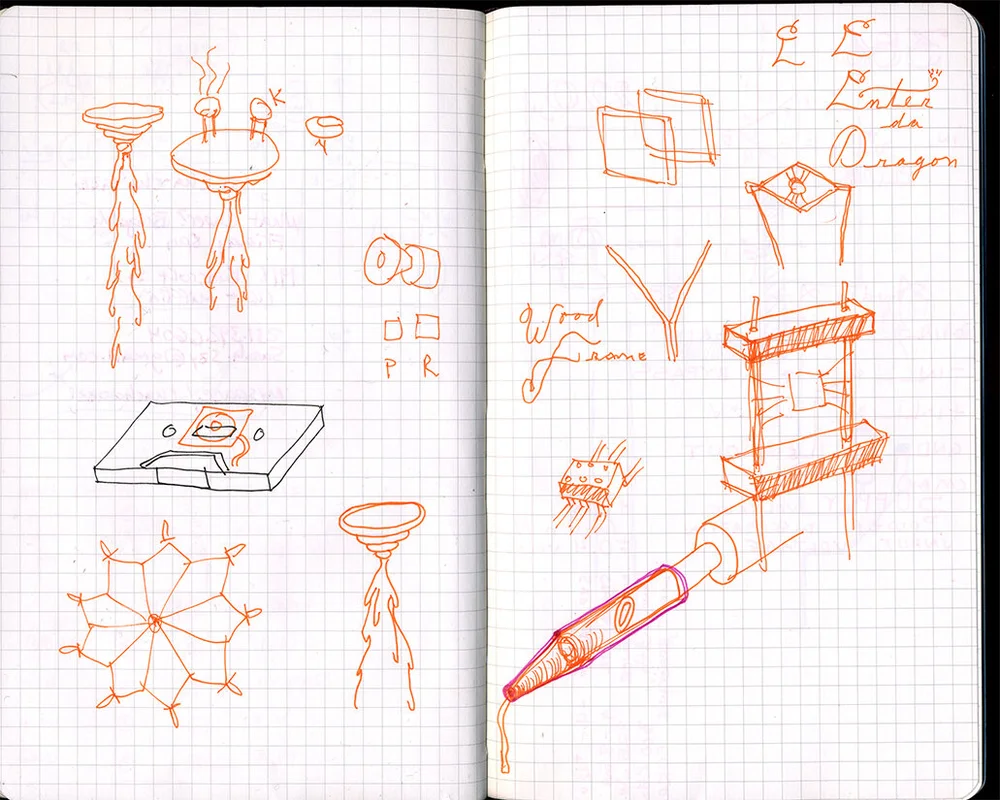 K
P R
L E
Enter
da
Dragon
Wood
Frame